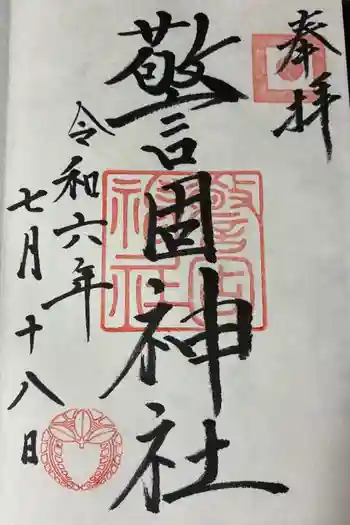 奉拝
警固神社
令和六年
七月十八日
警固神社